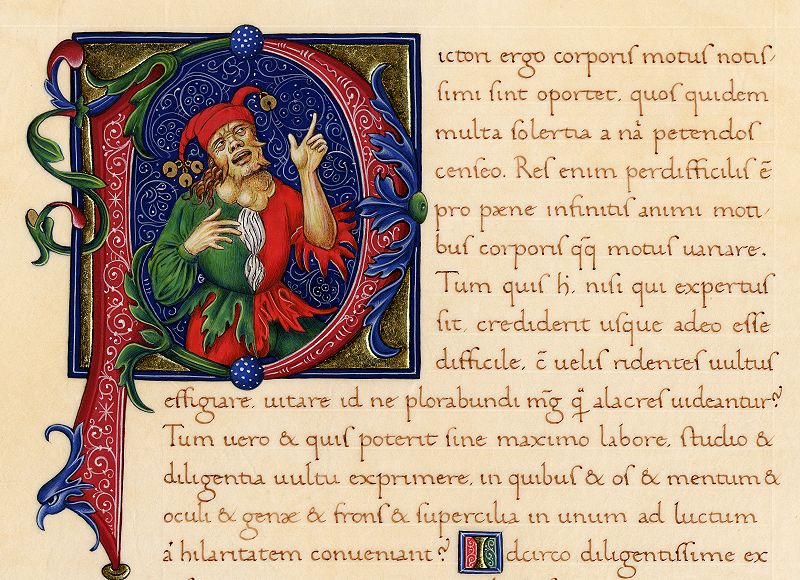 Pictori ergo corporis motus notis-
simi sint oportet, quos quidem
multa solertia a nā petendos
censeo. Res enim perdifficilis ē
pro pæne infinitis animi moti-
bus corporis qq̄ motus variare.
Tum quis h̄, nisi qui expertus
sit, crediderit usque adeo esse
difficile, c̄ velis ridentes vultus
effigiare, vitare id ne plorabundi mḡ q̄ alacres videantur?
Tum vero & quis poterit sine maximo labore, studio &
diligentia vultu exprimere, in quibus & os & mentum &
oculi & genæ & frons & supercilia in unum ad luctum
a' hilaritatem conveniant? Idcirco diligentissime ex